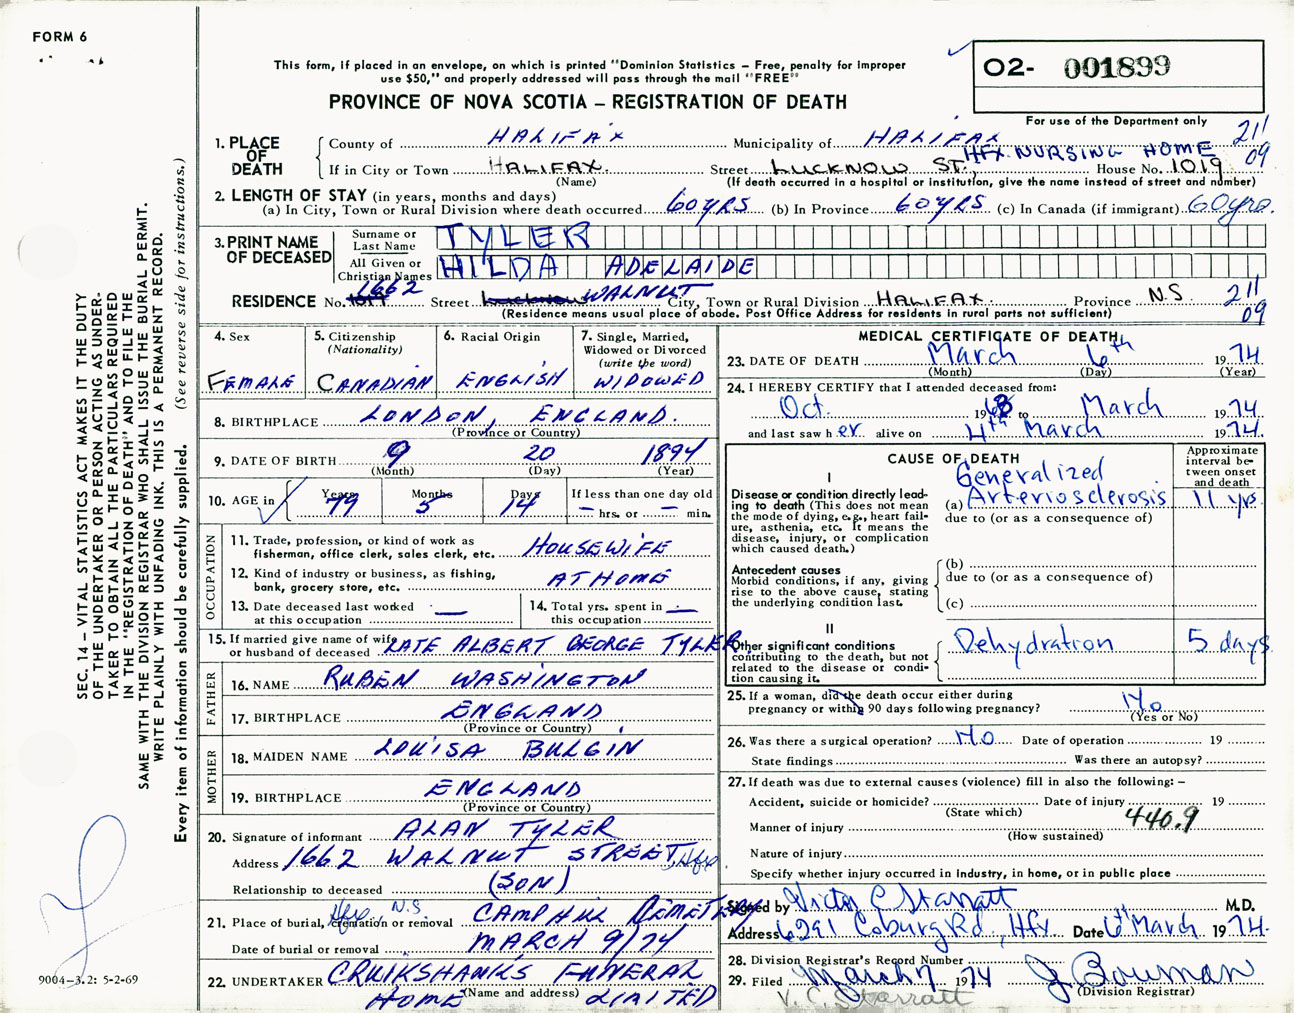 FORM 6
This form, if placed in an envelope, on which is printed "Dominion Statistics – Free, penalty for improper
use $50," and properly addressed will pass through the mail "FREE"
PROVINCE OF NOVA SCOTIA – REGISTRATION OF DEATH
O2- 001899
For use of the Department only
211
09
1. PLACE OF DEATH
County of HALIFAX Municipality of HALIFAX
HFX NURSING HOME
If in City or Town HALIFAX. Street LUCKNOW ST., House No. 1019
(Name) (If death occurred in a hospital or institution, give the name instead of street and number)
2. LENGTH OF STAY (in years, months and days)
(a) In City, Town or Rural Division where death occurred 60 YRS (b) In Province 60 YRS (c) In Canada (if immigrant) 60 yrs.
3. PRINT NAME OF DECEASED
Surname or Last Name TYLER
All Given or Christian Names HILDA ADELAIDE
1662
RESIDENCE No. 1019 Street Lucknow WALNUT City, Town or Rural Division HALIFAX. Province N.S. 211
09
(Residence means usual place of abode. Post Office Address for residents in rural parts not sufficient)
4. Sex
FEMALE
5. Citizenship
(Nationality)
CANADIAN
6. Racial Origin
ENGLISH
7. Single, Married,
Widowed or Divorced
(write the word)
WIDOWED
8. BIRTHPLACE LONDON, ENGLAND.
(Province or Country)
9. DATE OF BIRTH 9 20 1894
(Month) (Day) (Year)
10. AGE in
Years 79 Months 5 Days 14
If less than one day old
— hrs. or — min.
OCCUPATION
11. Trade, profession, or kind of work as
fisherman, office clerk, sales clerk, etc. HOUSEWIFE
12. Kind of industry or business, as fishing,
bank, grocery store, etc. AT HOME
13. Date deceased last worked
at this occupation —
14. Total yrs. spent in
this occupation —
15. If married give name of wife
or husband of deceased LATE ALBERT GEORGE TYLER
FATHER
16. NAME RUBEN WASHINGTON
17. BIRTHPLACE ENGLAND
(Province or Country)
MOTHER
18. MAIDEN NAME LOUISA BULGIN
19. BIRTHPLACE ENGLAND
(Province or Country)
20. Signature of informant ALAN TYLER
Address 1662 WALNUT STREET, Hfx
Relationship to deceased (SON)
Hfx N.S
21. Place of burial, cremation or removal CAMP HILL CEMETERY
Date of burial or removal MARCH 9/74
22. UNDERTAKER CRUIKSHANKS FUNERAL
HOME (Name and address) LIMITED
MEDICAL CERTIFICATE OF DEATH
23. DATE OF DEATH March 6th 1974
(Month) (Day) (Year)
24. I HEREBY CERTIFY that I attended deceased from:
Oct. 1963 to March 1974
and last saw h er alive on 4th March 1974.
CAUSE OF DEATH
Approximate
interval be-
tween onset
and death
I
Disease or condition directly lead-
ing to death (This does not mean
the mode of dying, e.g., heart fail-
ure, asthenia, etc. It means the
disease, injury, or complication
which caused death.)
Generalized
(a) Arteriosclerosis 11 yrs.
due to (or as a consequence of)
Antecedent causes
Morbid conditions, if any, giving
rise to the above cause, stating
the underlying condition last.
(b)
due to (or as a consequence of)
(c)
II
Other significant conditions
contributing to the death, but not
related to the disease or condi-
tion causing it.
Dehydration 5 days
25. If a woman, did the death occur either during
pregnancy or within 90 days following pregnancy? No
(Yes or No)
26. Was there a surgical operation? No Date of operation 19
State findings Was there an autopsy?
27. If death was due to external causes (violence) fill in also the following: –
Accident, suicide or homicide? Date of injury 19
(State which)
440.9
Manner of injury
(How sustained)
Nature of injury
Specify whether injury occurred in Industry, in home, or in public place
Signed by Victor C Starratt M.D.
Address 6291 Coburg Rd, Hfx Date 6th March 1974.
28. Division Registrar's Record Number
29. Filed March 7 1974 J. Bowman
(Division Registrar)
V. C. Starratt
SEC. 14 – VITAL STATISTICS ACT MAKES IT THE DUTY
OF THE UNDERTAKER OR PERSON ACTING AS UNDER-
TAKER TO OBTAIN ALL THE PARTICULARS REQUIRED
IN THE "REGISTRATION OF DEATH" AND TO FILE THE
SAME WITH THE DIVISION REGISTRAR WHO SHALL ISSUE THE BURIAL PERMIT.
WRITE PLAINLY WITH UNFADING INK. THIS IS A PERMANENT RECORD.
Every item of information should be carefully supplied. (See reverse side for instructions.)
9004-3.2: 5-2-69